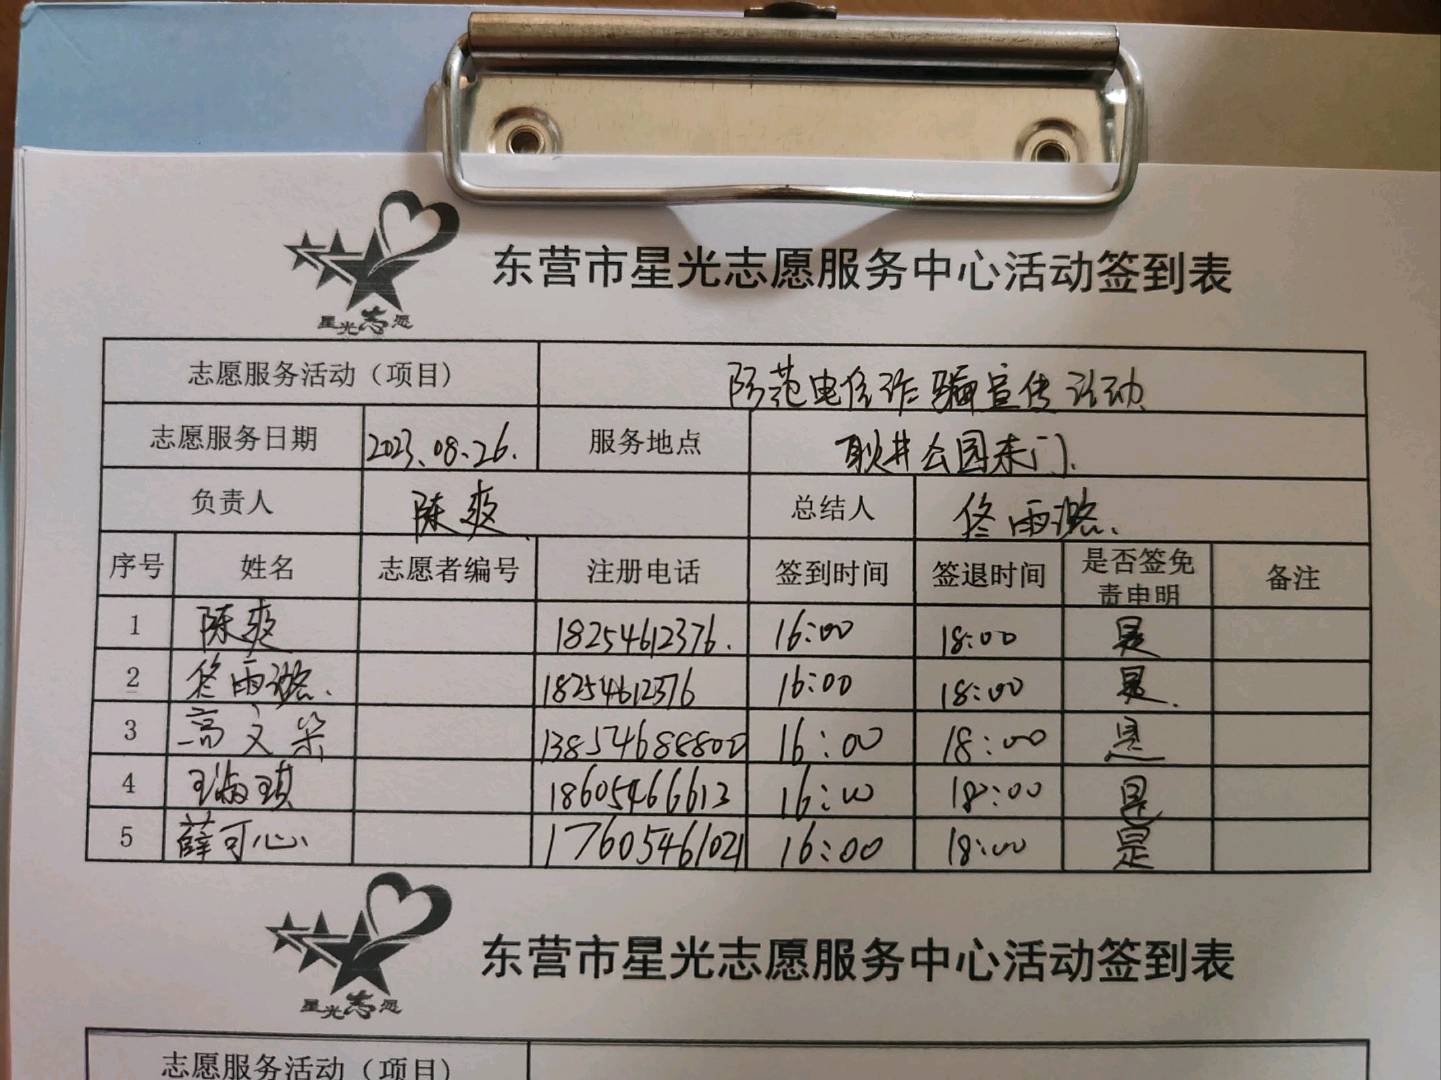 星光志愿
东营市星光志愿服务中心活动签到表
志愿服务活动（项目） 防范电信诈骗宣传活动
志愿服务日期 2023.08.26. 服务地点 耿井公园东门
负责人 陈爽 总结人 佟雨潞.
序号 姓名 志愿者编号 注册电话 签到时间 签退时间 是否签免责申明 备注
1 陈爽 18254612376. 16:00 18:00 是
2 佟雨潞. 18254612376 16:00 18:00 是.
3 高文朵 13854688800 16:00 18:00 是
4 王 琪 18605466613 16:00 18:00 是
5 薛可心 17605461021 16:00 18:00 是
星光志愿
东营市星光志愿服务中心活动签到表
志愿服务活动（项目）